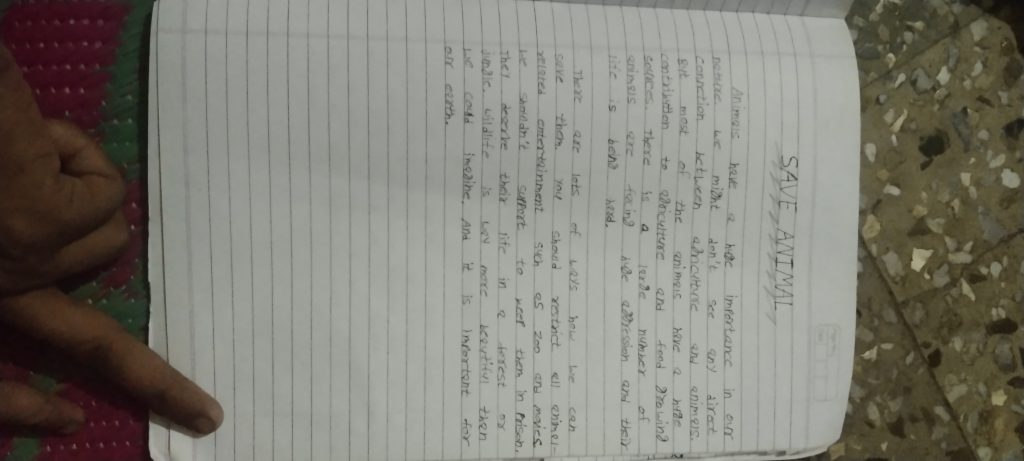 SAVE ANIMAL
Animals have a huge importance in our
nature we might don't see any direct
connection between agriculture and animals.
But most of the animals have a huge
contribution to agriculture and food growing
sources. There is a large number of
animals are facing huge aggression and their
life is being hard.
There are lots of ways how we can
save them. you should restrict all animal
related entertainment such as zoo and movies
We shouldn't support to keep them in Prison.
They deserve their life in a forest or
jungle. Wildlife is way more beautiful then
we could imagine. And it is important for
our earth.